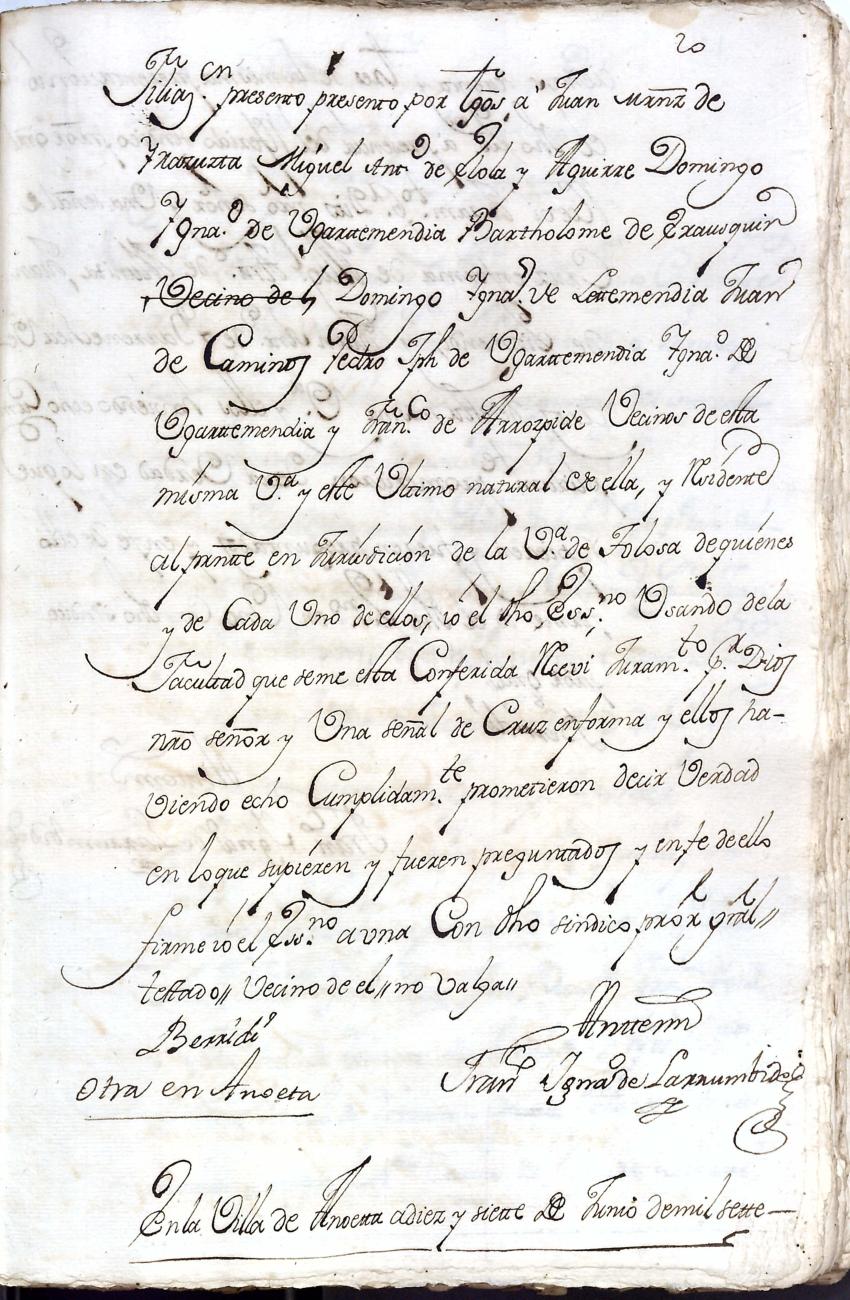 20
Filiaz.ⁿ presento presento por tg̃os aͩ Juan Mrñz de
Yrazuzta Miguel Antᵒ de Elola y Aguirre Domingo
Ygna.ᵒ de Ugarttemendia Bartholome de Yrausquin
Vecino del Domingo Ygnaᵒ. de Lettemendia Juan
de Caminos Pedro Jph de Ugarttemendia Ygna.ᵒ de
Ugarttemendia y Fran.ᶜᵒ de Arrozpide Vecinos de esta
misma V.ᵃ y este Ultimo natural de ella, y Residente
al presn̄tte en Jurisdición de la V.ᵃ de Tolosa de quiénes
y de Cada Uno de ellos, ió el dho Ess.ⁿᵒ Usando de la
Facultad que seme esta Conferida Reciví Juram.ᵗᵒ p.ʳ Dios
nr̃o señor y Una señal de Cruz enforma y ellos ha-
viendo echo Cumplidam.ᵗᵉ prometieron decir Verdad
en loque supiéren y fueren preguntados y enfe de ello
firme ió el Ess.ⁿᵒ a una Con dho sindico prõr gral̃〃
testado〃 Vecino de el〃 no valga〃
Berridiᵒ
Antemi
Franᶜᵒ Ygnaᵒ de Larrumbide
Otra en Anoeta
Enla Villa de Anoetta adiez y siette de Junio demil sette-